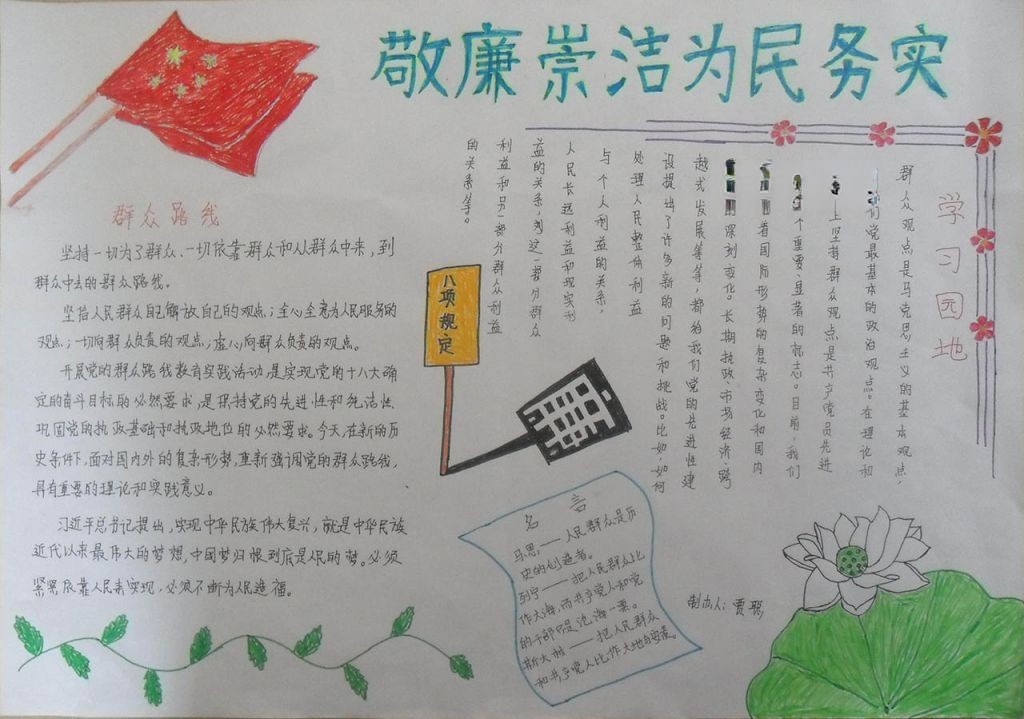 敬廉崇洁为民务实
群众路线
坚持一切为了群众、一切依靠群众和从群众中来,到
群众中去的群众路线。
坚信人民群众自己解放自己的观点;全心全意为人民服务的
观点;一切向群众负责的观点;虚心向群众负责的观点。
开展党的群众路线教育实践活动是实现党的十八大确
定的奋斗目标的必然要求,是保持党的先进性和纯洁性、
巩固党的执政基础和执政地位的必然要求。今天,在新的历
史条件下,面对国内外的复杂形势,重新强调党的群众路线,
具有重要的理论和实践意义。
习近平总书记提出,实现中华民族伟大复兴,就是中华民族
近代以来最伟大的梦想,中国梦归根到底是人民的梦。必须
紧紧依靠人民来实现,必须不断为人民造福。
学习园地
群众观点是马克思主义的基本观点,
们党最基本的政治观点。在理论和
上坚持群众观点是共产党员先进
个重要、显著的标志。目前,我们
着国际形势的复杂变化和国内
深刻变化。长期执政、市场经济、跨
越式发展等等,都给我们党的先进性建
设提出了许多新的问题和挑战。比如,如何
处理人民整体利益
与个人利益的关系,
人民长远利益和现实利
益的关系,到这一部分群众
利益和另一部分群众利益
的关系等。
八项规定
名言
马恩——人民群众是历
史的创造者。
列宁——把人民群众比
作大海,而共产党人和党
的干部只是沧海一粟。
斯大林——把人民群众
和共产党人比作大地与安泰。
制作人:贾聪